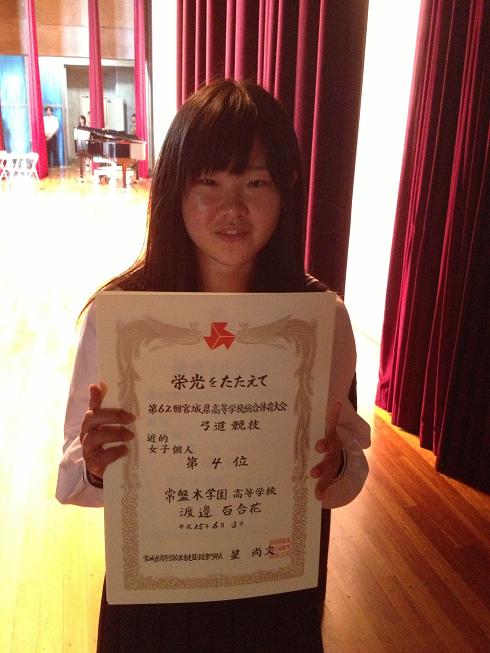 栄光をたたえて
第62回宮城県高等学校総合体育大会
弓道競技
近的
女子個人
第4位
常盤木学園高等学校
渡邊百合花
平成25年6月3日
星尚文